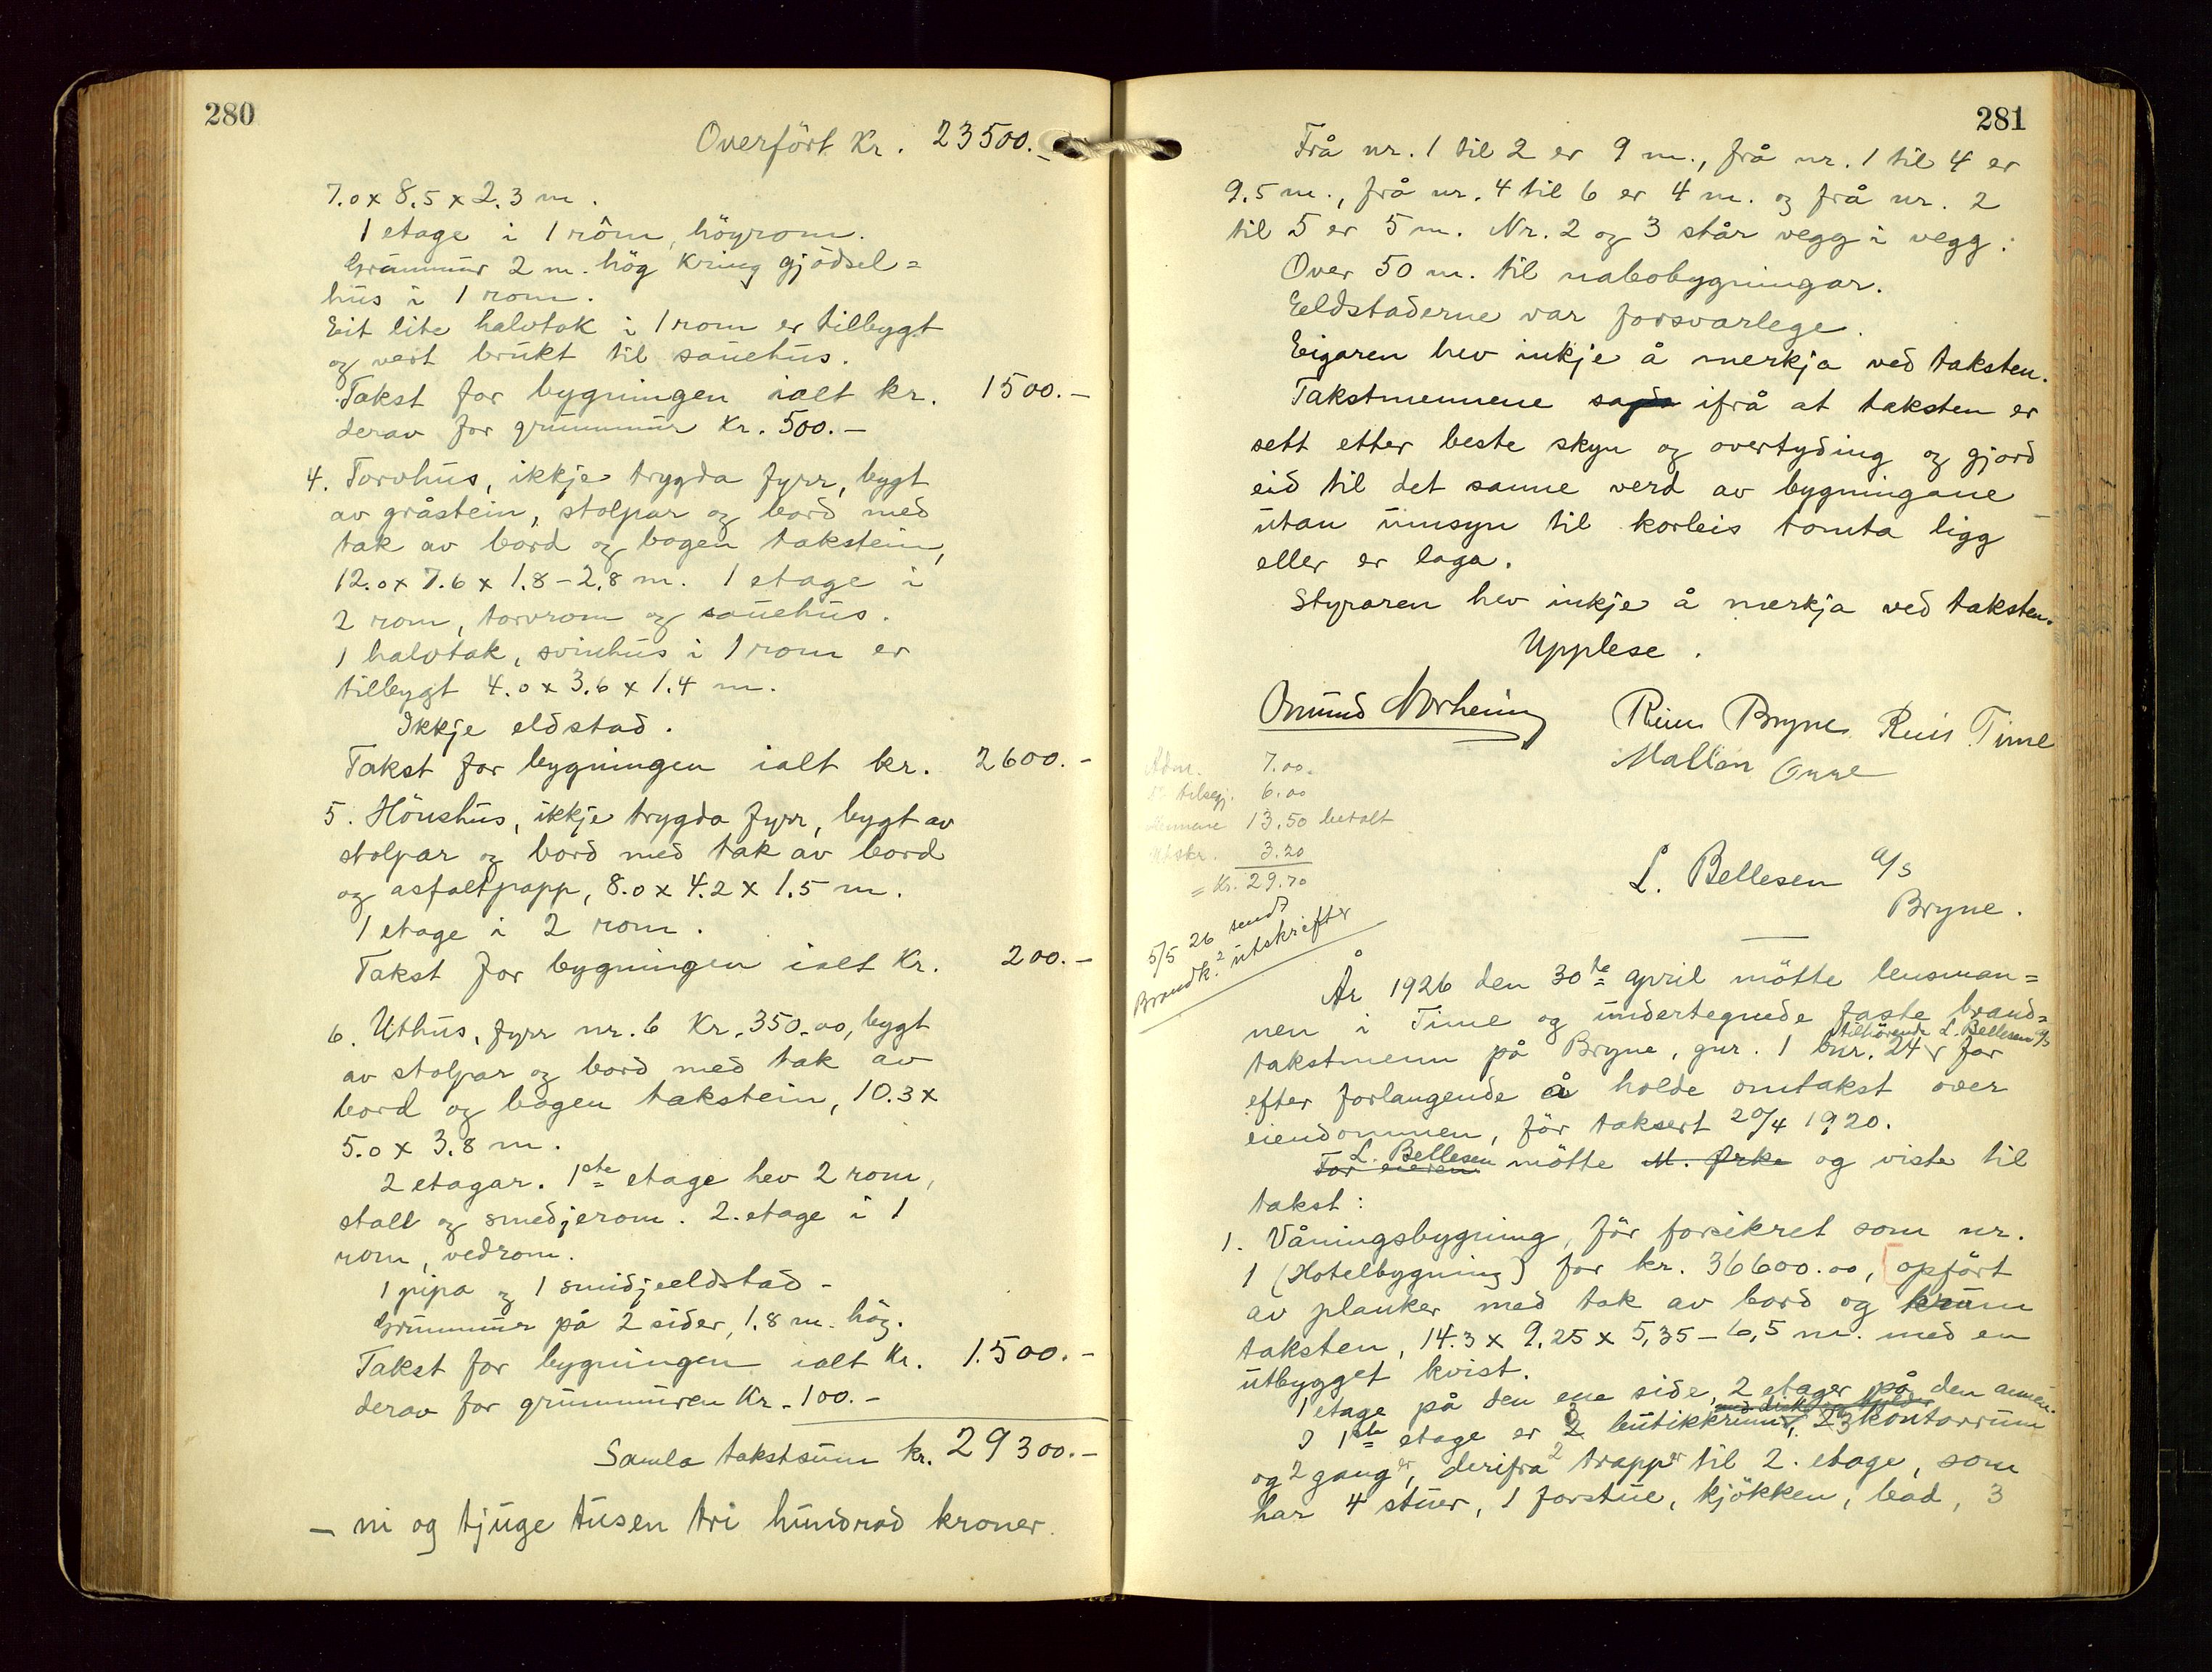 280
Overført kr. 23500.-
7.0 x 8.5 x 2.3 m.
1 etage i 1 rom, höyrom.
Grunnmur 2 m. hög kring gjödsel=
hus i 1 rom.
Eit lite halvtak i 1 rom er tilbygt
og vert brukt til sauehus.
Takst for bygningen ialt kr. 1500.-
derav for grunnmur kr. 500.-
4. Torvhus, ikkje trygda fyrr, bygt
av gråstein, stolpar og bord med
tak av bord og bogen takstein,
12.0 x 7.6 x 1.8-2.8 m. 1 etage i
2 rom, torvrom og sauehus.
1 halvtak, svinhus i 1 rom er
tilbygt 4.0 x 3.6 x 1.4 m.
Ikkje eldstad.
Takst for bygningen ialt kr. 2600.-
5. Hönshus, ikkje trygda fyrr, bygt av
stolpar og bord med tak av bord
og asfaltpapp, 8.0 x 4.2 x 1.5 m.
1 etage i 2 rom.
Takst for bygningen ialt kr. 200.-
6. Uthus, fyrr nr. 6 kr. 350.00, bygt
av stolpar og bord med tak av
bord og bogen takstein, 10.3 x
5.0 x 3.8 m.
2 etagar. 1ste etage hev 2 rom,
stall og smedjerom. 2. etage i 1
rom, vedrom.
1 pipa og 1 smidjeeldstad -
Grunnmur på 2 sider, 1.8 m. hög.
Takst for bygningen ialt kr. 1.500.-
derav for grunnmuren kr. 100.-
Samla takstsum kr. 29300.-
- ni og tjuge tusen tri hundrad kroner.
281
Frå nr. 1 til 2 er 9 m., frå nr. 1 til 4 er
9.5 m., frå nr. 4 til 6 er 4 m. og frå nr. 2
til 5 er 5 m. Nr. 2 og 3 står vegg i vegg.
Over 50 m. til nabobygningar.
Eeldstaderne var forsvarlege.
Eigaren hev inkje å merkja ved taksten.
Takstmennene sagde ifrå at taksten er
sett etter beste skyn og overtyding og gjord
eid til det sanne verd av bygningane
utan umsyn til korleis tomta ligg
eller er laga.
Styraren hev inkje å merkja ved taksten.
Upplese.
Omund Norheim Reim Bryne Reis Time
Mallin
7.00
tilsegj. 6.00
13.50 betalt
3.20
= Kr. 29.70
5/5 26 sendt
Brandk. 2 utskrifter
L. Bellesen A/S
Bryne.
År 1926 den 30te april mötte lensman=
nen i Time og undertegnede faste brand=
takstmenn på Bryne, gnr. 1 bnr. 24 tilhörende L. Bellesen A/S for
efter forlangende å holde omtakst over
eiendommen, för taksert 20/4 1920.
For eieren L. Bellesen mötte M. Orke og viste til
takst:
1. Våningsbygning, för forsikret som nr.
1 (Hotelbygning) for kr. 36600.00, opfört
av planker med tak av bord og krum
taksten, 14.3 x 9.25 x 5,35-6,5 m. med en
utbygget kvist.
1 etage på den ene side, 2 etager på den annen.
I 1ste etage er 2 butikkrum, 3 kontorrum
og 2 ganger, derifra 2 trapper til 2. etage, som
har 4 stuer, 1 forstue, kjökken, bad, 3